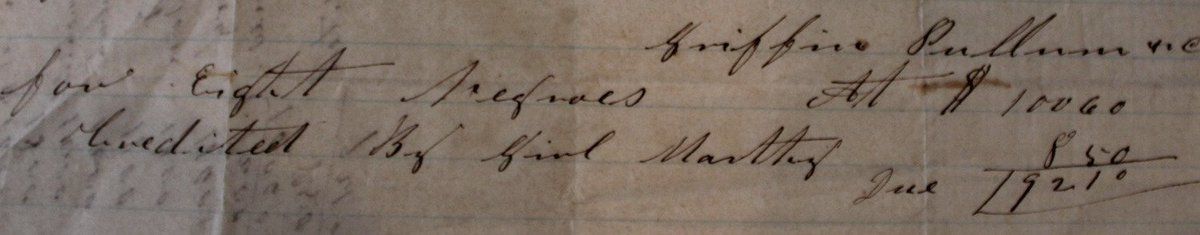 Griffin Pullum & Co
for Eight Negroes At $ 10060
Credited By Girl Marthy 850
Due 9210